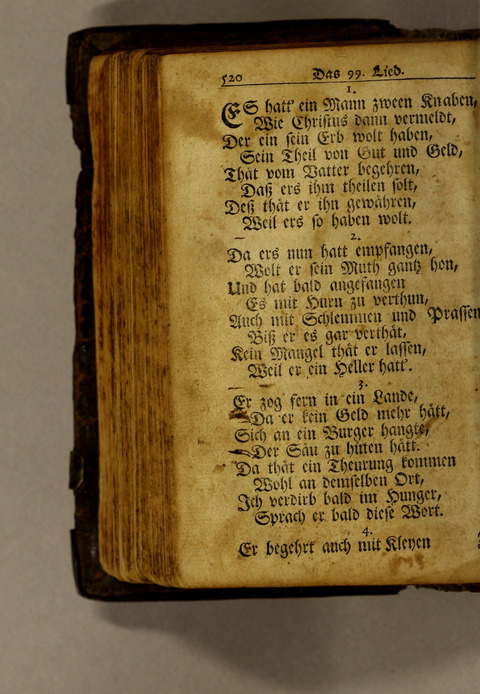 520 Das 99. Lied.
1.
ES hatt' ein Mann zween Knaben,
Wie Christus dann vermeldt,
Der ein sein Erb wolt haben,
Sein Theil von Gut und Geld,
Thät vom Vatter begehren,
Daß ers ihm theilen solt,
Deß thät er ihn gewähren,
Weil ers so haben wolt.
2.
Da ers nun hatt empfangen,
Wolt er sein Muth gantz hon,
Und hat bald angefangen
Es mit Hurn zu verthun,
Auch mit Schlemmen und Prassen
Biß er es gar verthät,
Kein Mangel thät er lassen,
Weil er ein Heller hatt'.
3.
Er zog fern in ein Lande,
Da er kein Geld mehr hätt,
Sich an ein Burger hangte,
Der Säu zu hüten hätt.
Da thät ein Theurung kommen
Wohl an demselben Ort,
Ich verdirb bald im Hunger,
Sprach er bald diese Wort.
4.
Er begehrt auch mit Kleyen